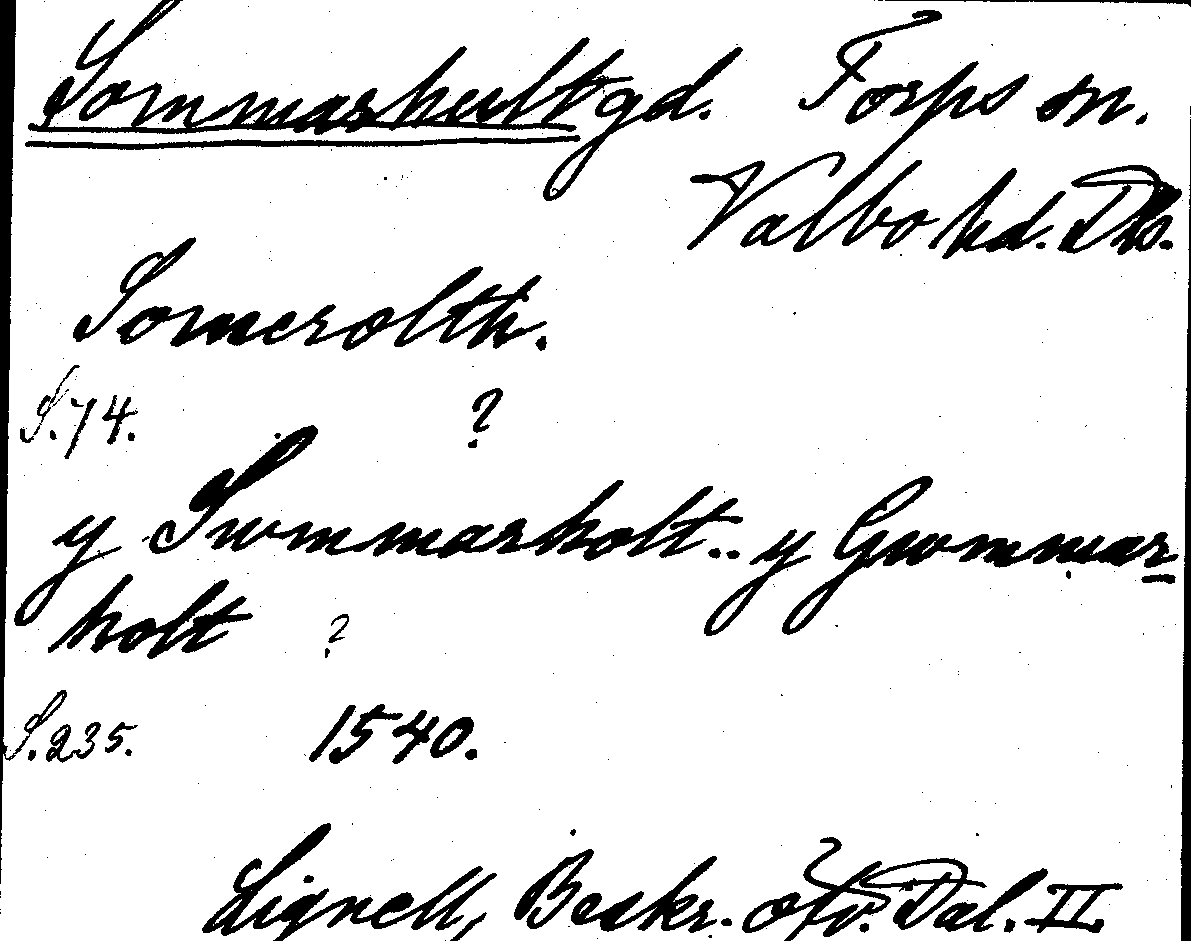 Sommarhult gd. Torps sn.
Valbo hd. Dls.
Somerolth.
S. 74. ?
y Swmmarholt.. y Gwommar-
holt ?
S. 235. 1540.
Lignell, Beskr. öfv. Dal. II.